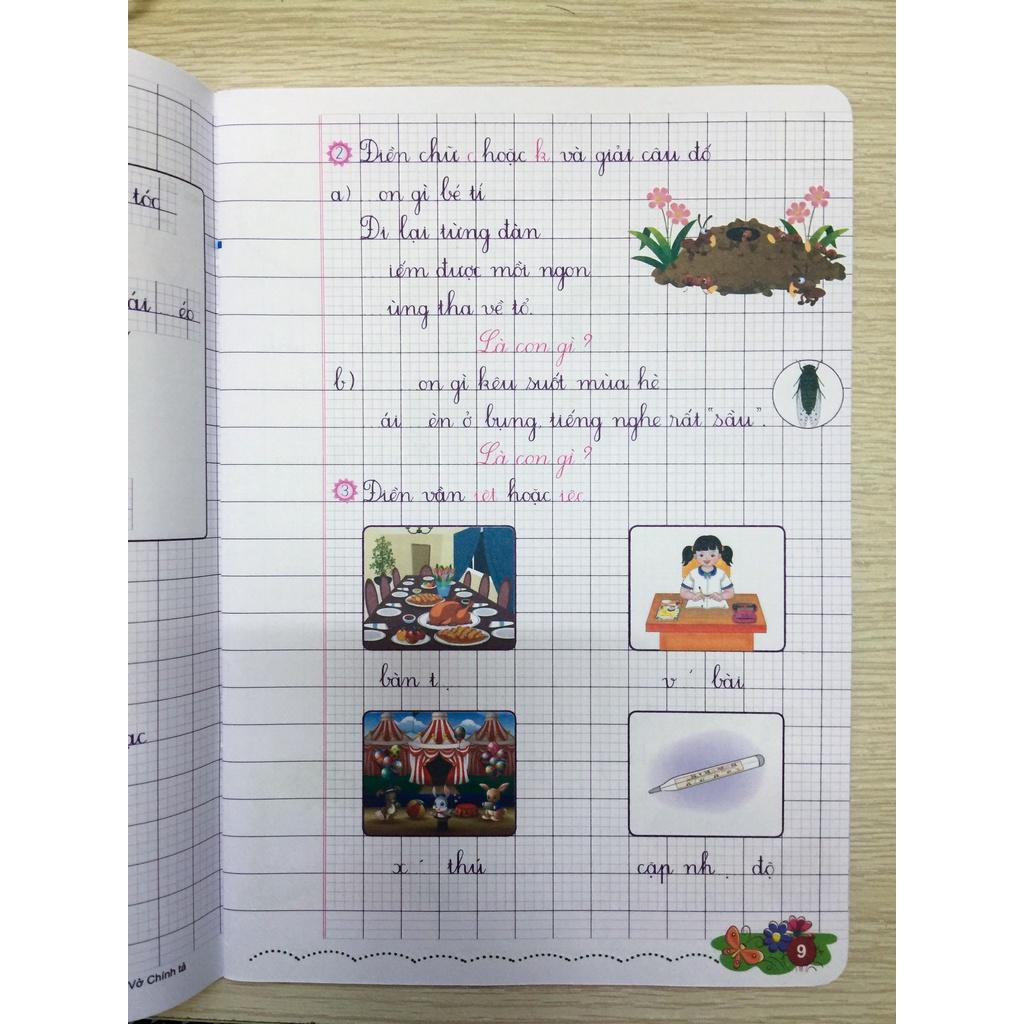 tóc
ái éo
ạc
Vở Chính tả
2 Điền chữ c hoặc k và giải câu đố
a) on gì bé tí
Đi lại từng đàn
iếm được mồi ngon
ùng tha về tổ.
Là con gì?
b) on gì kêu suốt mùa hè
ái èn ở bụng, tiếng nghe rất "sầu".
Là con gì?
3 Điền vần iêt hoặc iêc
bàn t .
v ́ bài
x ́ thú
cặp nh . độ
9